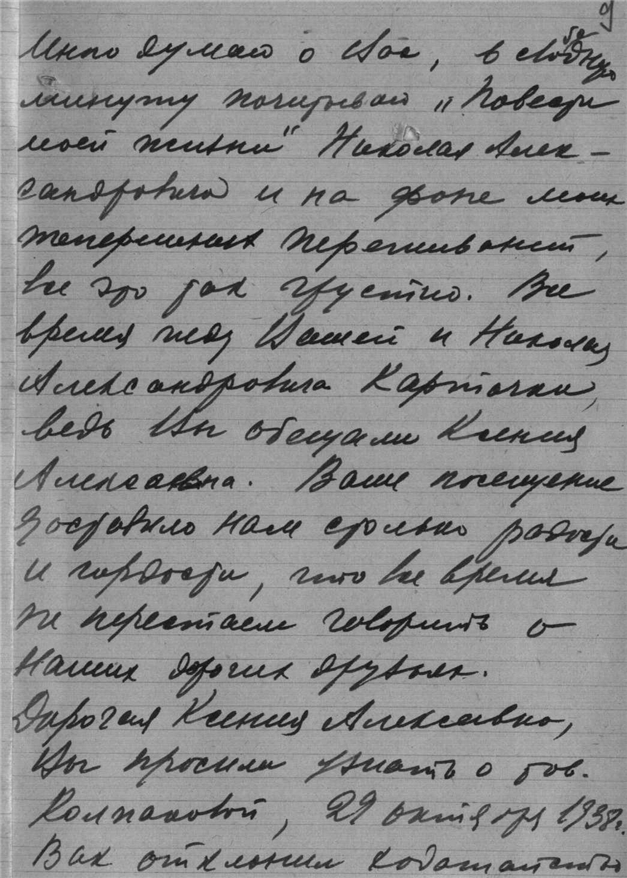 9
Много думаю о Вас, в свободную
минуту почитываю „Повести
моей жизни" Николая Алек-
сандровича и на фоне моих
теперешних переживаний,
все это так грустно. Все
время жду Вашей и Николая
Александровича карточки,
ведь Вы обещали Ксения
Алексеевна. Ваше посещение
доставило нам столько радости
и гордости, что все время
не перестаем говорить о
наших дорогих друзьях.
Дорогая Ксения Алексеевна,
Вы просили узнать о тов.
Колпаковой, 29 октября 1938г.
Вак отклонил ходатайство